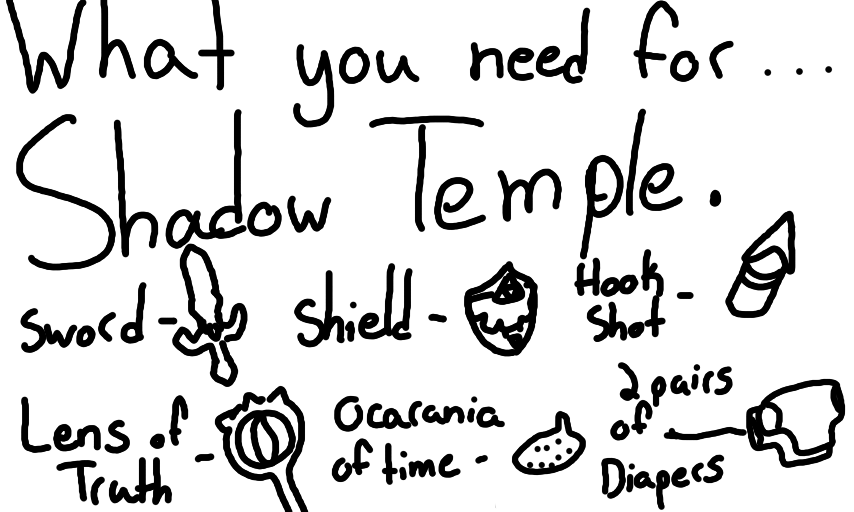 What you need for...
Shadow Temple.
Sword -
Shield -
Hook
Shot -
Lens of
Truth -
Ocarania
of time -
2 pairs
of
Diapers